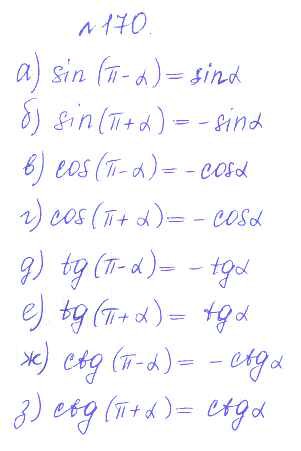 №170.
а) sin (π-α) = sinα
б) sin (π+α) = - sinα
в) cos (π-α) = - cosα
г) cos (π+α) = - cosα
д) tg (π-α) = - tgα
е) tg (π+α) = tgα
ж) ctg (π-α) = - ctgα
з) ctg (π+α) = ctgα